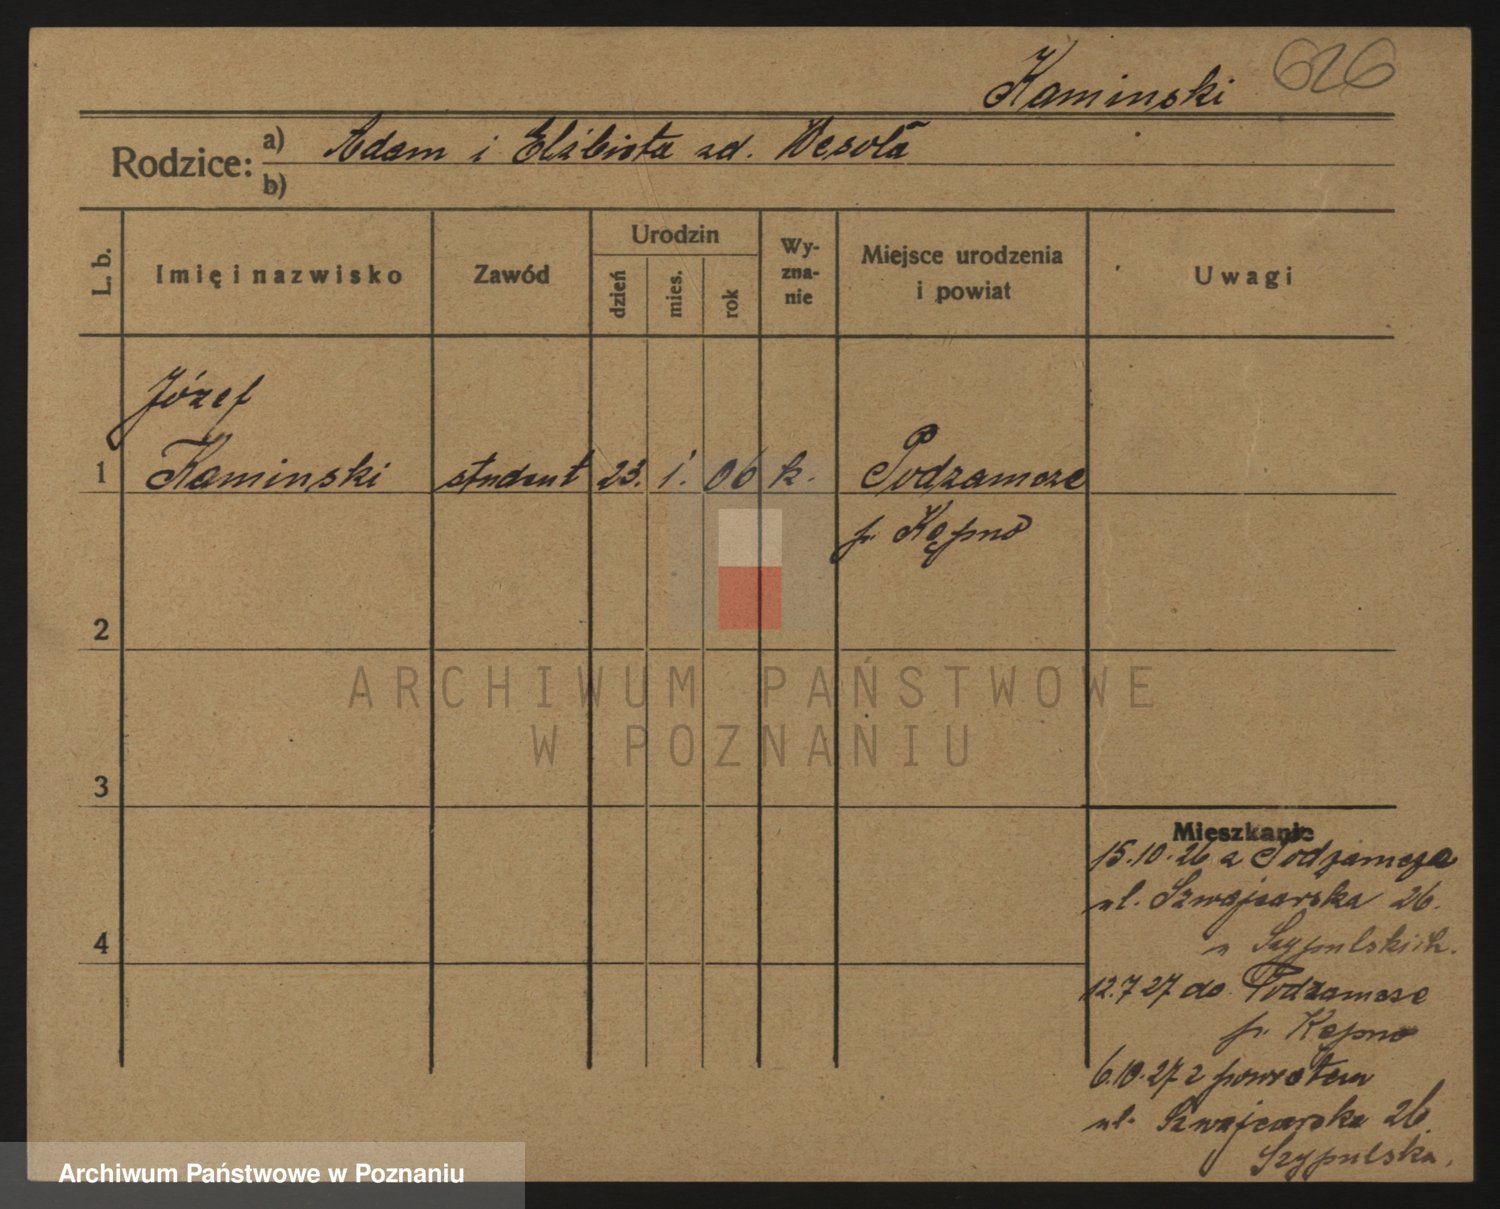 Kaminski 626
Rodzice: a) Adam i Elżbieta zd. Wesoła
b)
L. b. Imię i nazwisko Zawód Urodzin dzień mies. rok Wy-zna-nie Miejsce urodzenia i powiat Uwagi
Józef
1 Kaminski student 23. 1. 06 k. Podzamcze
p. Kępno
2
ARCHIWUM PAŃSTWOWE
W POZNANIU
3
Mieszkanie
15.10.26 z Podzamcze
ul. Szwajcarska 26.
u Szypulskich.
4
12.7 27 do Podzamcze
p. Kępno
6.10.27 z powrotem
ul. Szwajcarska 26.
Szypulska.
Archiwum Państwowe w Poznaniu